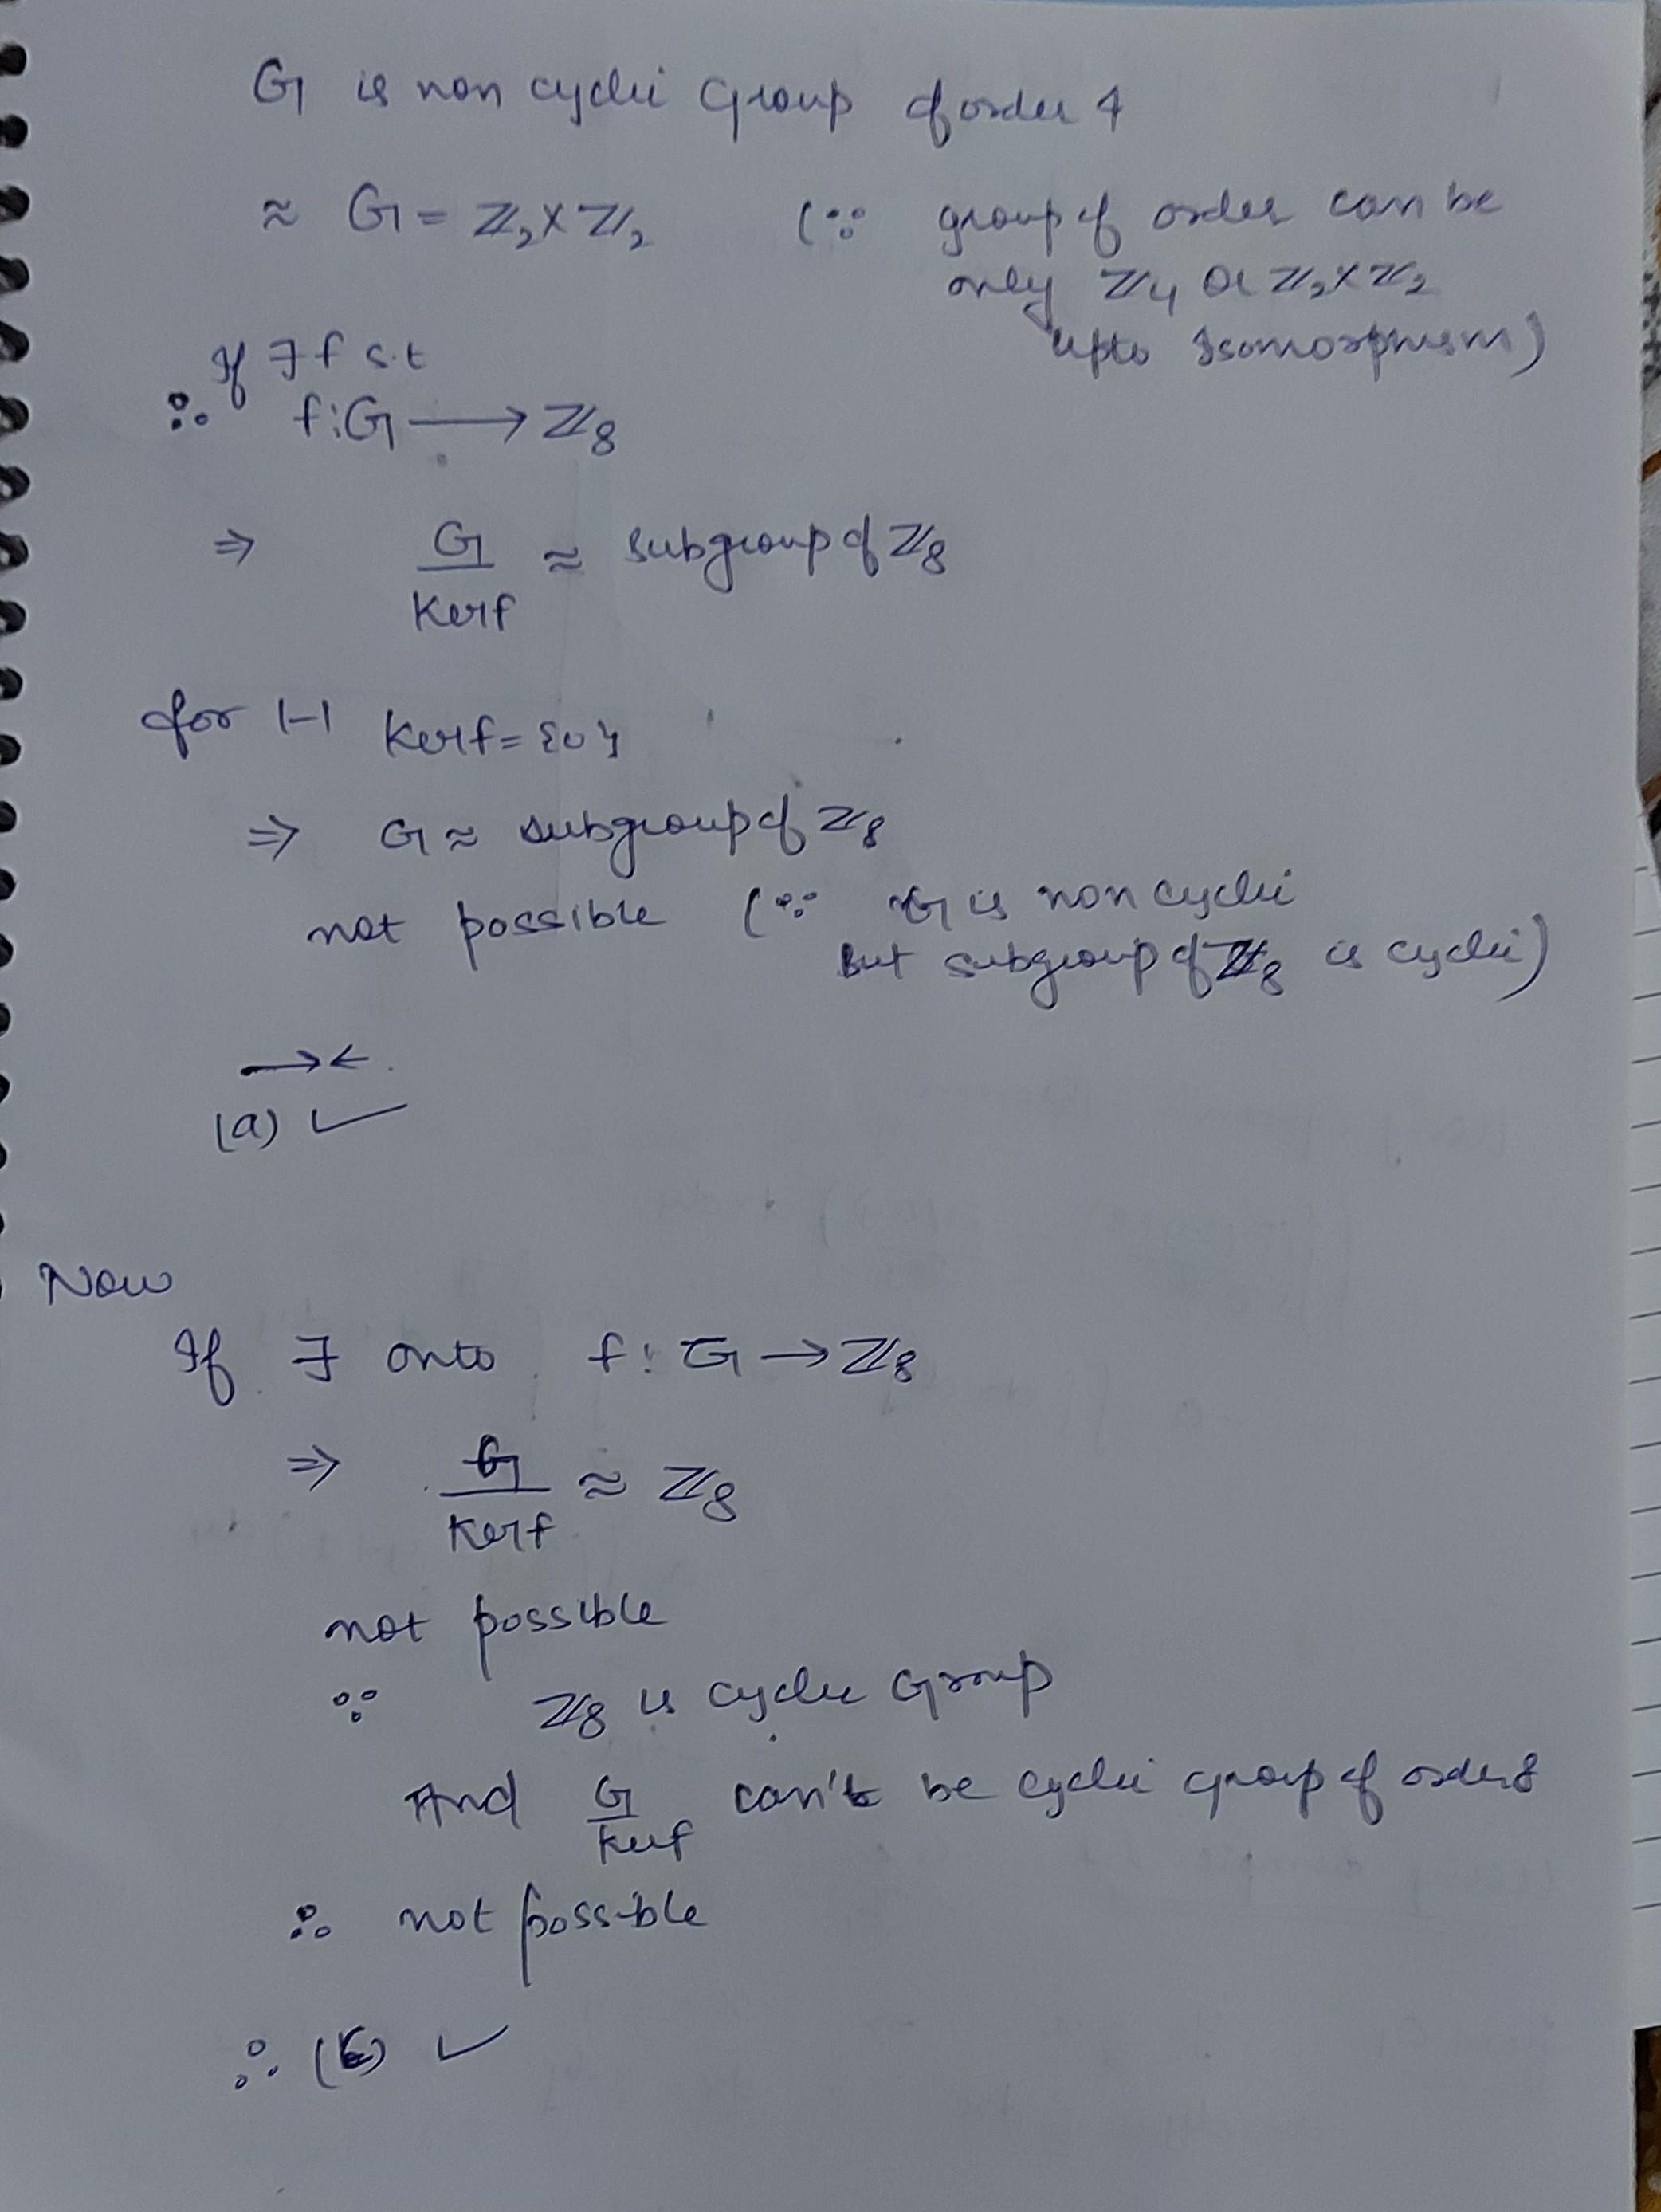 G is non cyclic Group of order 4
≈ G = ℤ₂ × ℤ₂ (∵ group of order can be
only ℤ₄ or ℤ₂ × ℤ₂
upto Isomorphism)
If ∃ f s.t
∴ f: G ⟶ ℤ₈
⇒ G/Kerf ≈ subgroup of ℤ₈
for 1-1 Kerf = {0}
⇒ G ≈ subgroup of ℤ₈
not possible (∵ G is non cyclic
But subgroup of ℤ₈ is cyclic)
→←.
(a) ✓
Now
If ∃ onto f: G → ℤ₈
⇒ G/Kerf ≈ ℤ₈
not possible
∵ ℤ₈ is cyclic Group
And G/Kerf can't be cyclic group of order 8
∴ not possible
∴ (c) ✓